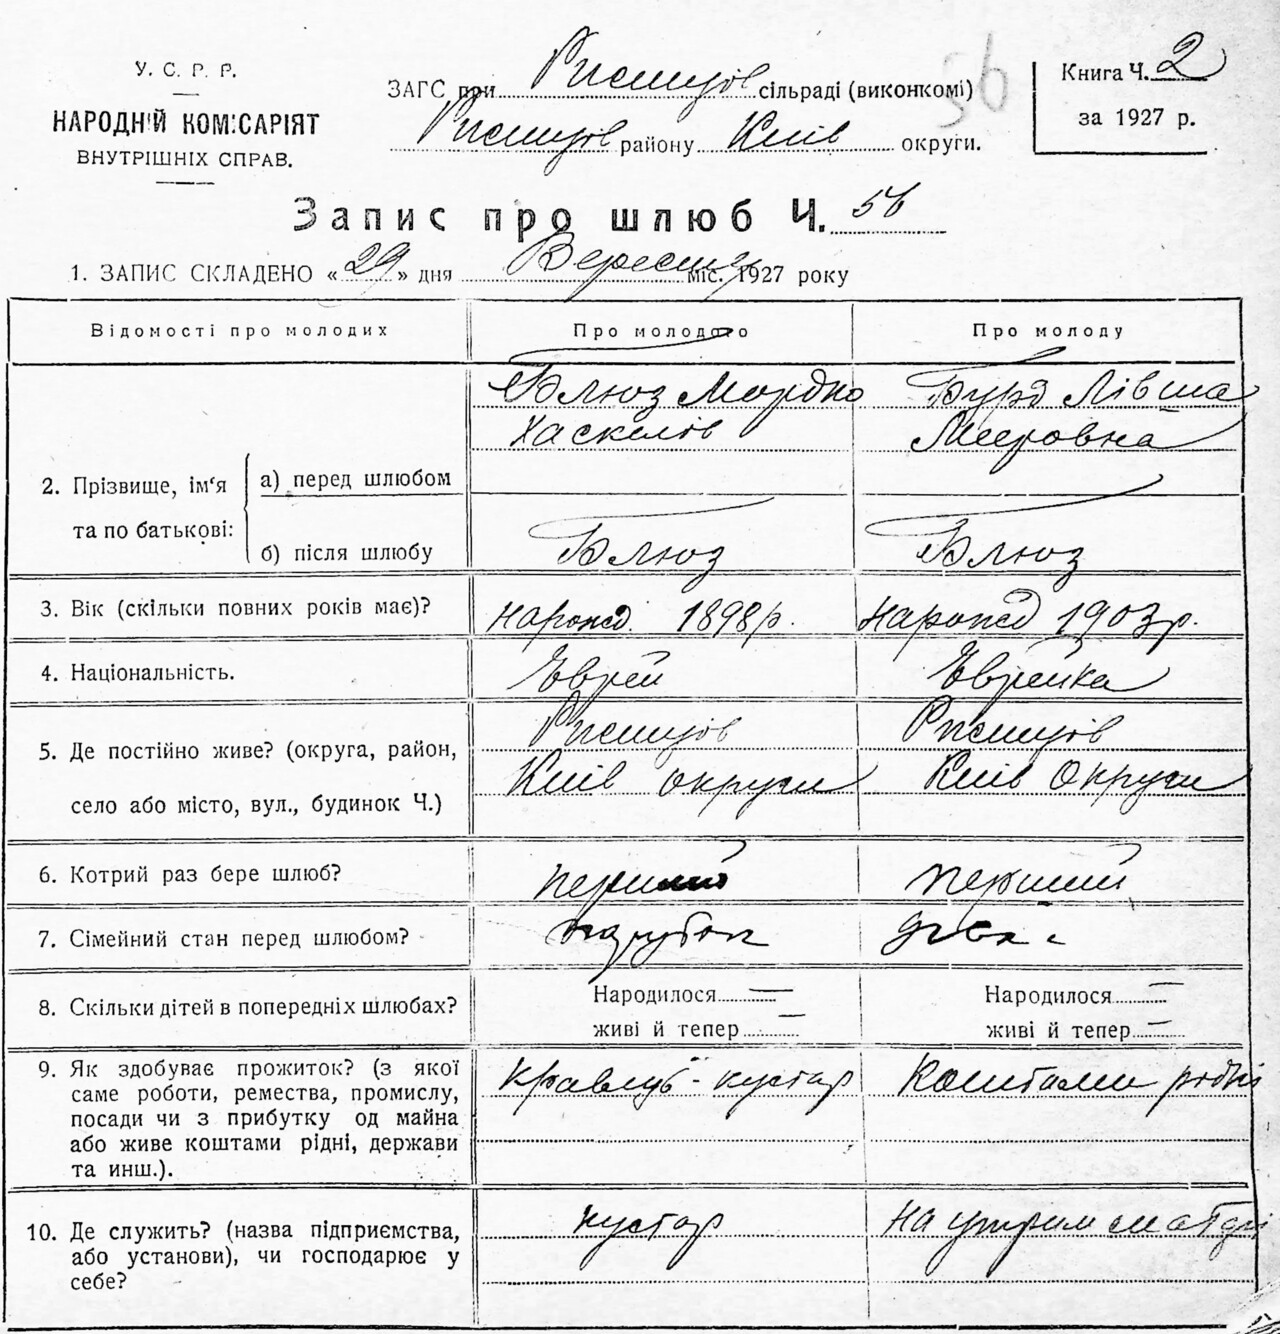 У. С. Р. Р.
НАРОДНІЙ КОМІСАРІЯТ
ВНУТРІШНІХ СПРАВ.
ЗАГС при Ржищів сільраді (виконкомі)
Ржищів району Київ округи.
56
Книга Ч. 2
за 1927 р.
Запис про шлюб Ч. 56
1. ЗАПИС СКЛАДЕНО « 29 » дня Вересня міс. 1927 року
Відомості про молодих
Про молодого
Про молоду
2. Прізвище, ім'я та по батькові:
а) перед шлюбом
Блюз Мордко
Хаскелів
Бурд Лівша
Мееровна
б) після шлюбу
Блюз
Блюз
3. Вік (скільки повних років має)?
нарожд. 1898 р.
нарожд 1903 р.
4. Національність.
Єврей
Єврейка
5. Де постійно живе? (округа, район,
село або місто, вул., будинок Ч.)
Ржищів
Київ округи
Ржищів
Київ округи
6. Котрий раз бере шлюб?
перший
перший
7. Сімейний стан перед шлюбом?
парубок
дівка
8. Скільки дітей в попередніх шлюбах?
Народилося —
живі й тепер —
Народилося —
живі й тепер —
9. Як здобуває прожиток? (з якої
саме роботи, ремества, промислу,
посади чи з прибутку од майна
або живе коштами рідні, держави
та инш.).
кравець - кустар
Коштами рідні
10. Де служить? (назва підприємства,
або установи), чи господарює у
себе?
кустар
на утрим матері